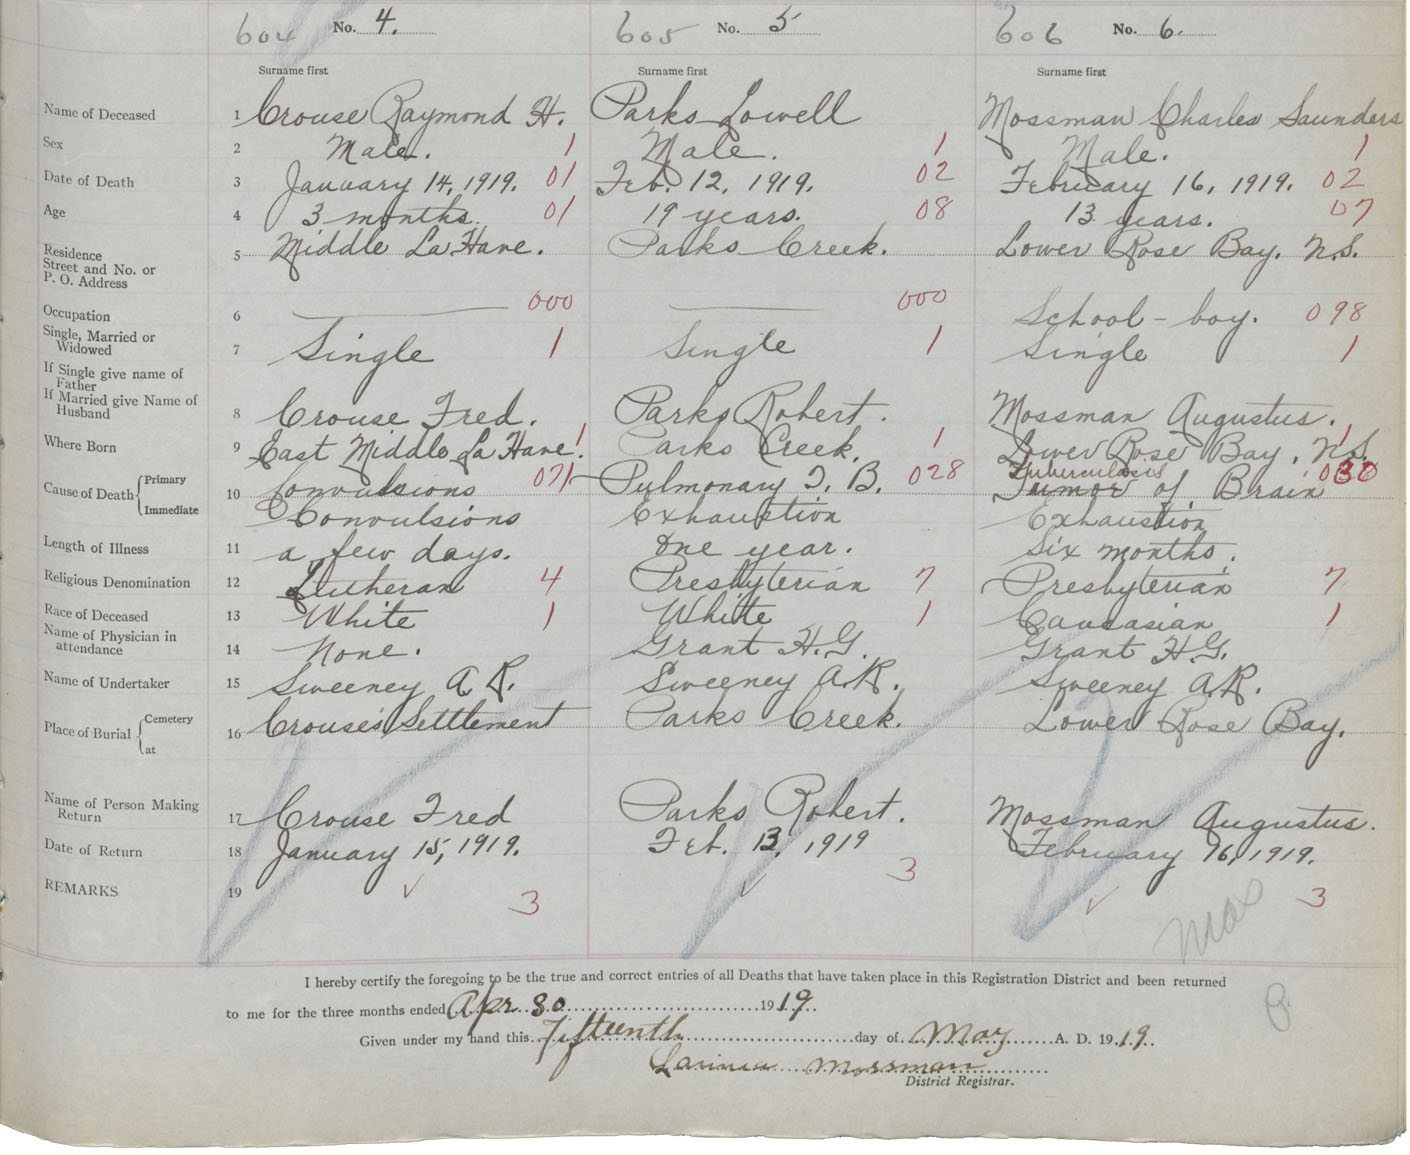 604 No. 4. 605 No. 5 606 No. 6.
Surname first Surname first Surname first
Name of Deceased 1 Crouse Raymond H. Parks Lowell Mossman Charles Saunders
Sex 2 Male. 1 Male. 1 Male. 1
Date of Death 3 January 14, 1919. 01 Feb. 12, 1919. 02 February 16, 1919. 02
Age 4 3 months. 01 19 years. 08 13 years. 07
Residence Street and No. or P. O. Address 5 Middle La Have. Parks Creek. Lower Rose Bay, N.S.
Occupation 6 000 000 School-boy. 098
Single, Married or Widowed 7 Single 1 Single 1 Single 1
If Single give name of Father
If Married give Name of Husband 8 Crouse Fred. Parks Robert. Mossman Augustus.
Where Born 9 East Middle La Have. 1 Parks Creek. 1 Lower Rose Bay, N.S. 1
Tuberculosis
Cause of Death Primary 10 Convulsions 071 Pulmonary T. B. 028 Tumor of Brain
Immediate Convulsions Exhaustion Exhaustion
Length of Illness 11 a few days. One year. Six months.
Religious Denomination 12 Lutheran 4 Presbyterian 7 Presbyterian 7
Race of Deceased 13 White 1 White 1 Caucasian 1
Name of Physician in attendance 14 None. Grant H.G. Grant H.G.
Name of Undertaker 15 Sweeney A.R. Sweeney A.R. Sweeney A.R.
Place of Burial Cemetery at 16 Crouse's Settlement Parks Creek. Lower Rose Bay.
Name of Person Making Return 17 Crouse Fred Parks Robert. Mossman Augustus.
Date of Return 18 January 15, 1919. Feb. 13, 1919 February 16, 1919.
REMARKS 19 3 3 3
I hereby certify the foregoing to be the true and correct entries of all Deaths that have taken place in this Registration District and been returned
to me for the three months ended Apr 30 1919.
Given under my hand this Fifteenth day of May A. D. 1919.
Lavinia Mossman
District Registrar.